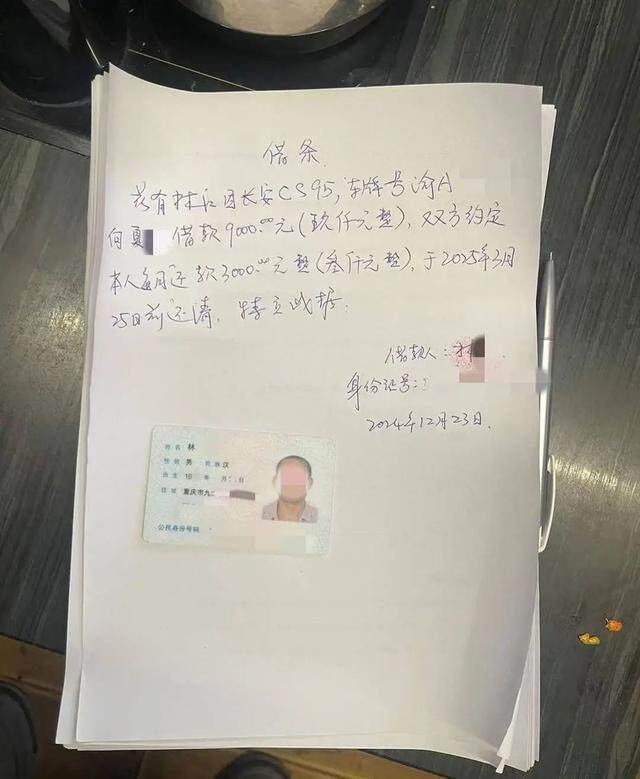 借条
兹有林江因长安CS95,车牌号渝A
向夏 借款9000.00元(玖仟元整),双方约定
本人每月还款3000.00元整(叁仟元整),于2025年3月
25日前还清,特立此据.
借款人:林
身份证号:
2024年12月23日.
姓名 林
性别 男 民族 汉
出生 19 年 月 日
住址 重庆市九
公民身份号码